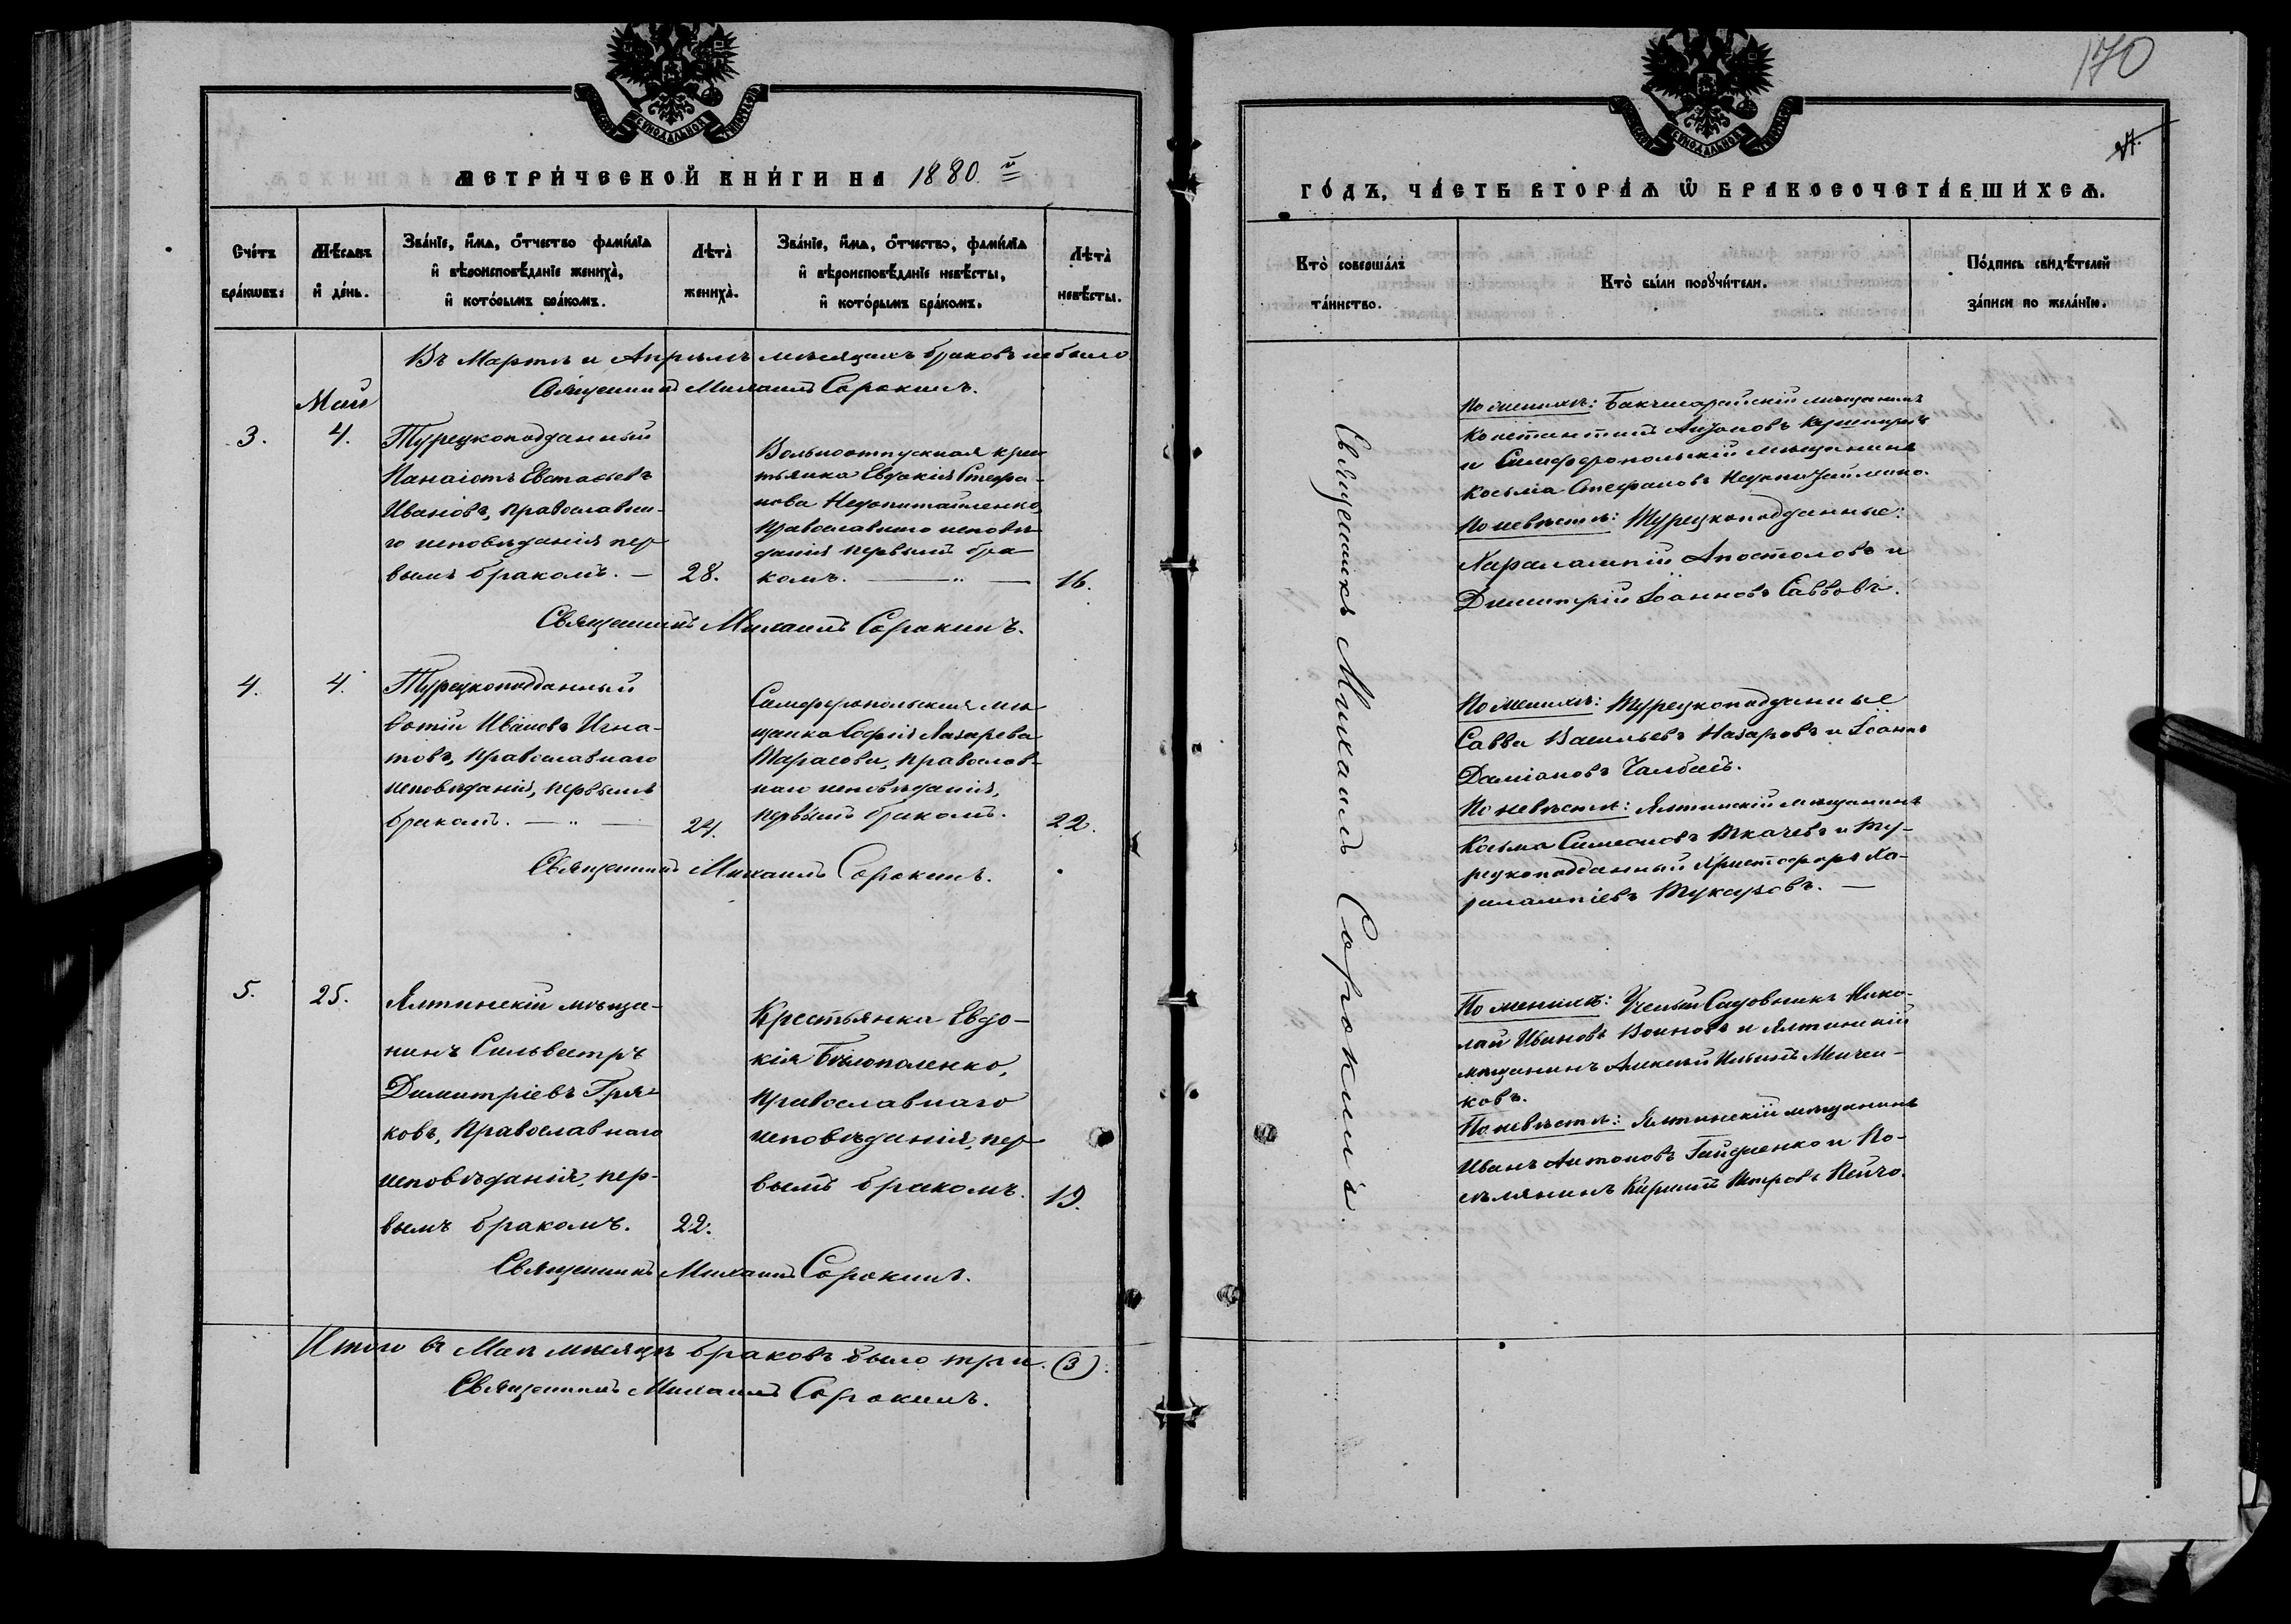 СѴНОДАЛЬНОЙ
МЕТРИ́ЧЕСКОЙ КНИ́ГИ НА 1880 й
Сче́тъ бра́кѡвъ:
Мѣ́сѧцъ и҆ де́нь.
Зва́нїе, и҆́мѧ, о҆́тчество фами́лїа и҆ вѣроисповѣ́данїе жениха̀, и҆ кото́рымъ бра́комъ.
Лѣта̀ жениха̀.
Зва́нїе, и҆́мѧ, о҆́тчество, фами́лїа и҆ вѣроисповѣ́данїе невѣ́сты, и҆ кото́рымъ бра́комъ.
Лѣта̀ невѣ́сты.
Въ Мартѣ и Апрѣлѣ мѣсяцахъ браковъ не было
Священникъ Михаилъ Сорокинъ.
Май
3.
4.
Турецкоподданный
Панаіотъ Евстаѳьевъ
Ивановъ, православна-
го исповѣданія пер
вымъ бракомъ. —
28.
Вольноотпускная крес
тьянка Евдокія Стефа-
нова
православнаго исповѣ
данія первымъ бра
комъ. — „ —
16.
Священникъ Михаилъ Сорокинъ.
4.
4.
Турецкоподданный
Фотій Ивановъ Игна-
товъ, православнаго
исповѣданія, первымъ
бракомъ. — „ —
24.
Симферопольская мѣ
щанка Софія Лазарева
Тарасова, православ-
наго исповѣданія,
первымъ бракомъ.
22.
Священникъ Михаилъ Сорокинъ.
5.
25.
Ялтинскій мѣща-
нинъ Сильвестръ
Димитріевъ Гря-
ковъ, Православнаго
исповѣданія, пер-
вымъ бракомъ.
22.
Крестьянка Евдо-
кія Бѣлополенко,
Православнаго
исповѣданія, пер
вымъ бракомъ.
19.
Священникъ Михаилъ Сорокинъ.
Итого въ Маѣ мѣсяцѣ браковъ было три. (3).
Священникъ Михаилъ Сорокинъ.
170
СѴНОДАЛЬНОЙ
ГО́ДЪ, ЧА́СТЬ ВТОРА́Ѧ Ѽ БРАКОСОЧЕТА́ВШИХСѦ.
Кто̀ соверша́лъ та́инство.
Кто̀ бы́ли порꙋчи́тели.
По́дпись свидѣ́телей за́писи по жела́нїю.
Священникъ Михаилъ Сорокинъ.
По женихѣ: Бахчисарайскій мѣщанинъ
Константинъ
и Симферопольскій мѣщанинъ
Косьма Стефановъ
По невѣстѣ: Турецкоподданные:
Харалампій Апостоловъ и
Димитрій Іоанновъ Савовъ.
По женихѣ: Турецкоподданные
Савва Васильевъ Назаровъ и Іоаннъ
Даміановъ
По невѣстѣ: Ялтинскій мѣщанинъ
Косьма Симеоновъ Ткачевъ и Ту-
рецкоподданный Христофоръ Ха-
рлампіевъ —
По женихѣ: Ученый Садовникъ Нико-
лай Ивановъ Воиновъ и Ялтинскій
мѣщанинъ Алексѣй Ильинъ
ковъ.
По невѣстѣ: Ялтинскій мѣщанинъ
Иванъ Антоновъ Гайдаенко и По-
селянинъ Кириллъ Петровъ